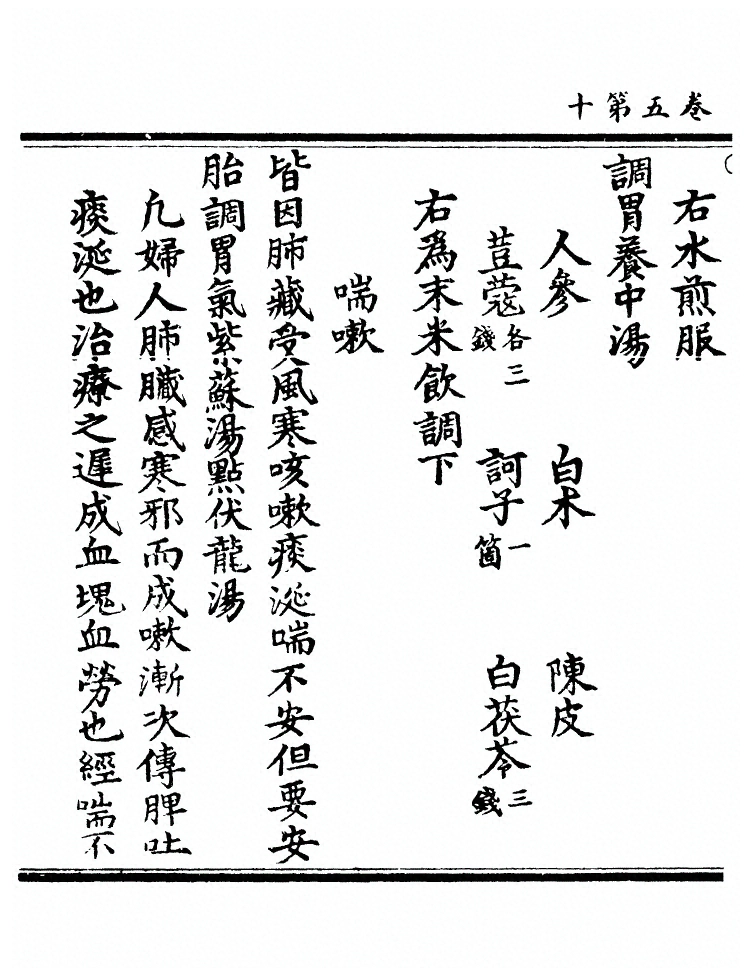 卷五第十
右水煎服
調胃養中湯
人參 白朮 陳皮
荳蔻各三錢 訶子一箇 白茯苓三錢
右爲末米飲調下
喘嗽
皆因肺藏受風寒咳嗽痰涎喘不安但要安
胎調胃氣紫蘇湯點伏龍湯
凢婦人肺臟感寒邪而成嗽漸次傳脾吐
痰涎也治療之遲成血塊血勞也經喘不